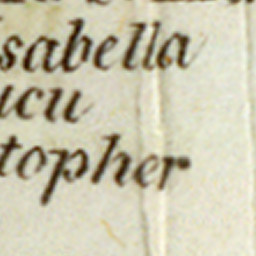 Isabella
ucu
topher